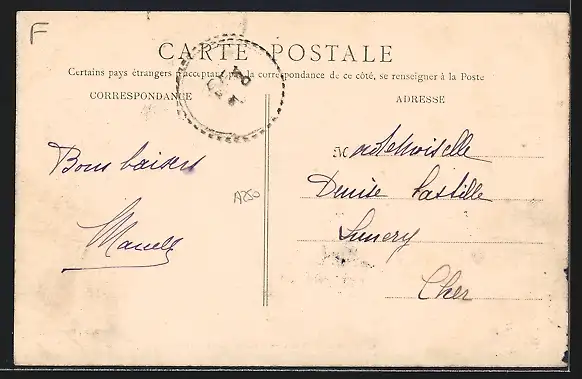 F
CARTE POSTALE
Certains pays étrangers n'acceptant pas la correspondance de ce côté, se renseigner à la Poste
CORRESPONDANCE
ADRESSE
Bons baisers
A250
Mademoiselle
Denise
Lunery
Cher